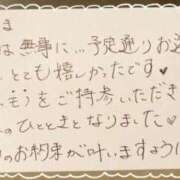 ま
は無事に…予定通りお逢
とても嬉しかったです♥
もうをご持参いただき
のひとときとなりました♡
のお約束が叶いますように